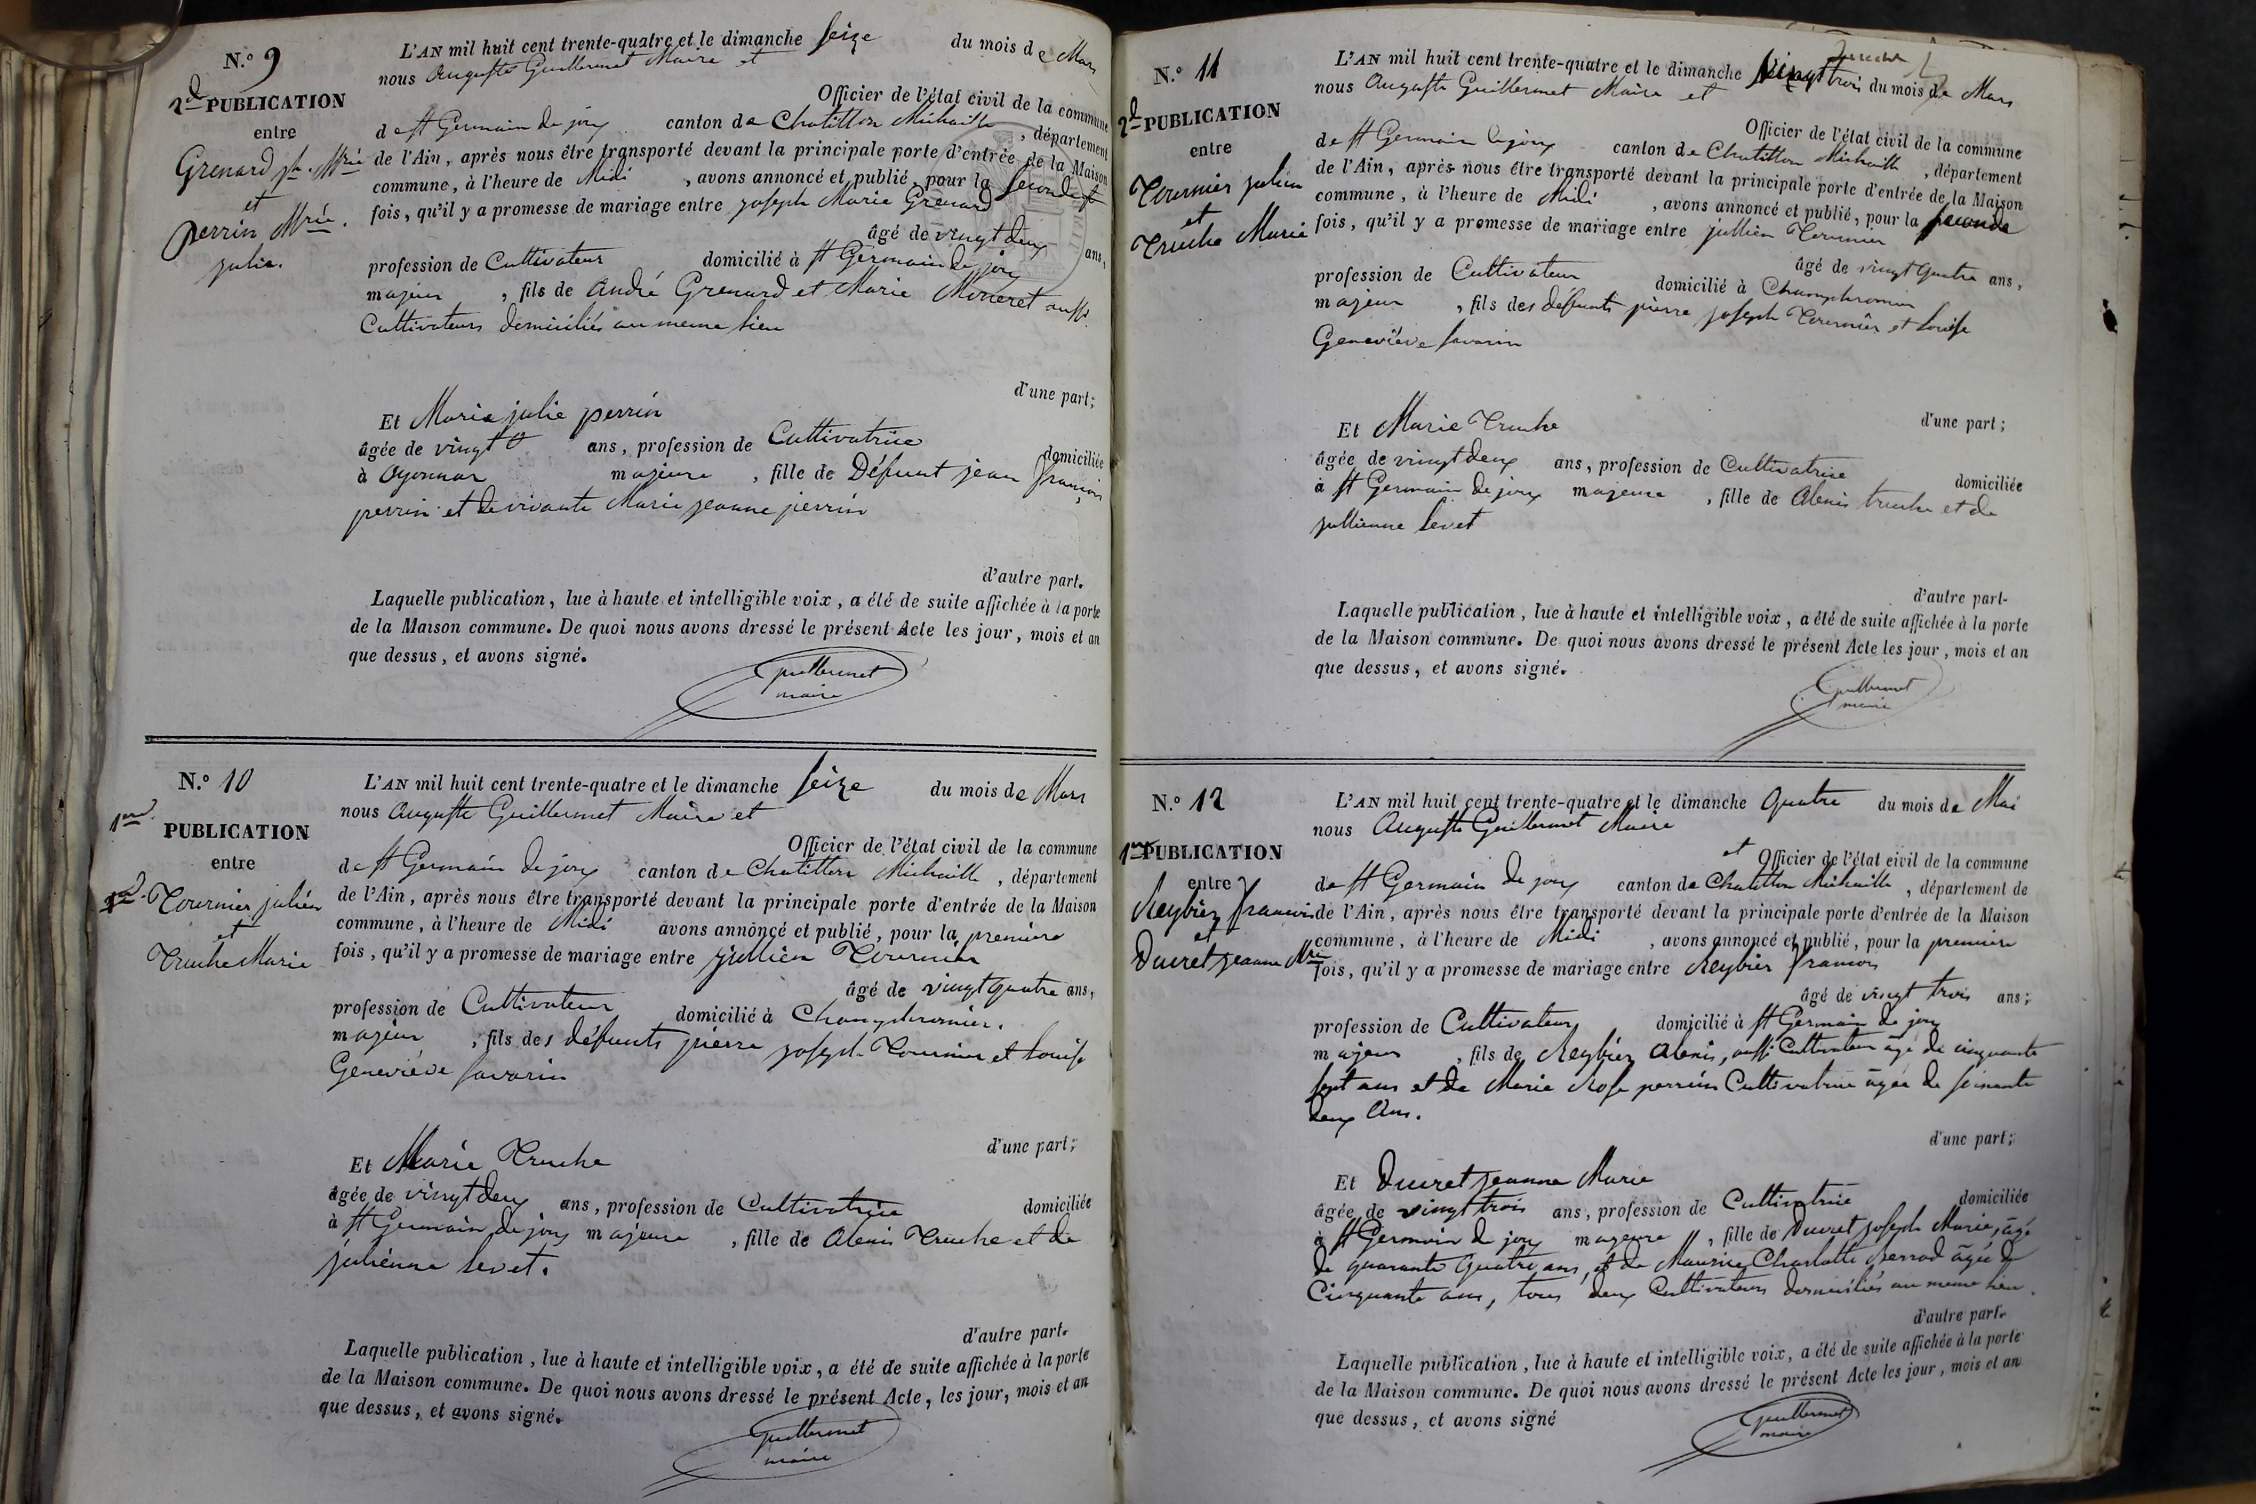 N.º 9
2de PUBLICATION
entre
Grenard jh. Mrie
et
perrin Mrie
julie.
L'AN mil huit cent trente-quatre et le dimanche seize du mois de Mars
nous Auguste Guillermet Maire et
Officier de l'état civil de la commune
de St Germain de joux canton de Chatillon Michaille, département
de l'Ain, après nous être transporté devant la principale porte d'entrée de la Maison
commune, à l'heure de Midi, avons annoncé et publié, pour la seconde
fois, qu'il y a promesse de mariage entre joseph Marie Grenard
âgé de vingt deux ans,
profession de Cultivateur domicilié à St Germain de joux
majeur, fils de André Grenard et Marie Moneret aussi
Cultivateurs domiciliés au meme lieu
d'une part;
Et Marie julie perrin
âgée de vingt ans, profession de Cultivatrice domiciliée
à Oyonnax majeure, fille de Défunt jean françois
perrin et de vivante Marie jeanne perrin
d'autre part.
Laquelle publication, lue à haute et intelligible voix, a été de suite affichée à la porte
de la Maison commune. De quoi nous avons dressé le présent Acte les jour, mois et an
que dessus, et avons signé.
Guillermet
maire
N.º 10
1ere PUBLICATION
entre
Tournier julien
et
Truche Marie
L'AN mil huit cent trente-quatre et le dimanche seize du mois de Mars
nous Auguste Guillermet Maire et
Officier de l'état civil de la commune
de St Germain de joux canton de Chatillon Michaille, département
de l'Ain, après nous être transporté devant la principale porte d'entrée de la Maison
commune, à l'heure de Midi avons annoncé et publié, pour la premiere
fois, qu'il y a promesse de mariage entre jullien Tournier
âgé de vingt quatre ans,
profession de Cultivateur domicilié à Champfromier.
majeur, fils des défunts pierre joseph Tournier et Louise
Geneviève Savarin
d'une part;
Et Marie Truche
âgée de vingt deux ans, profession de Cultivatrice domiciliée
à St Germain de joux majeure, fille de Alexis Truche et de
juliénne Levet.
d'autre part.
Laquelle publication, lue à haute et intelligible voix, a été de suite affichée à la porte
de la Maison commune. De quoi nous avons dressé le présent Acte, les jour, mois et an
que dessus, et avons signé.
Guillermet
maire
N.º 11
2de PUBLICATION
entre
Tournier julien
et
Truche Marie
L'AN mil huit cent trente-quatre et le dimanche vingt trois du mois de Mars
nous Auguste Guillermet Maire et
Officier de l'état civil de la commune
de St Germain de joux canton de Chatillon Michaille, département
de l'Ain, après nous être transporté devant la principale porte d'entrée de la Maison
commune, à l'heure de Midi, avons annoncé et publié, pour la seconde
fois, qu'il y a promesse de mariage entre jullien Tournier
âgé de vingt quatre ans,
profession de Cultivateur domicilié à Champfromier
majeur, fils des défunts pierre joseph Tournier et Louise
Geneviève Savarin
d'une part;
Et Marie Truche
âgée de vingt deux ans, profession de Cultivatrice domiciliée
à St Germain de joux majeure, fille de Alexis truche et de
jullienne Levet
d'autre part.
Laquelle publication, lue à haute et intelligible voix, a été de suite affichée à la porte
de la Maison commune. De quoi nous avons dressé le présent Acte les jour, mois et an
que dessus, et avons signé.
Guillermet
maire
N.º 12
1ere PUBLICATION
entre
Reybier francois
et
Ducret jeanne Mrie
L'AN mil huit cent trente-quatre et le dimanche quatre du mois de Mai
nous Auguste Guillermet Maire
et Officier de l'état civil de la commune
de St Germain de joux canton de Chatillon Michaille, département de
de l'Ain, après nous être transporté devant la principale porte d'entrée de la Maison
commune, à l'heure de Midi, avons annoncé et publié, pour la premiere
fois, qu'il y a promesse de mariage entre Reybier francois
âgé de vingt trois ans;
profession de Cultivateur domicilié à St Germain de joux
majeur, fils de Reybier Alexis, aussi Cultivateur âgé de cinquante
sept ans et de Marie Rose perrin Cultivatrice âgée de soixante
deux Ans.
d'une part;
Et Ducret jeanne Marie
âgée de vingt trois ans, profession de Cultivatrice domiciliée
à St Germain de joux majeure, fille de Ducret joseph Marie, âgé
de quarante quatre ans, et de Maurice Charlotte âgée de
Cinquante ans, tous deux Cultivateurs domiciliés au meme lieu.
d'autre part.
Laquelle publication, lue à haute et intelligible voix, a été de suite affichée à la porte
de la Maison commune. De quoi nous avons dressé le présent Acte les jour, mois et an
que dessus, et avons signé
Guillermet
maire